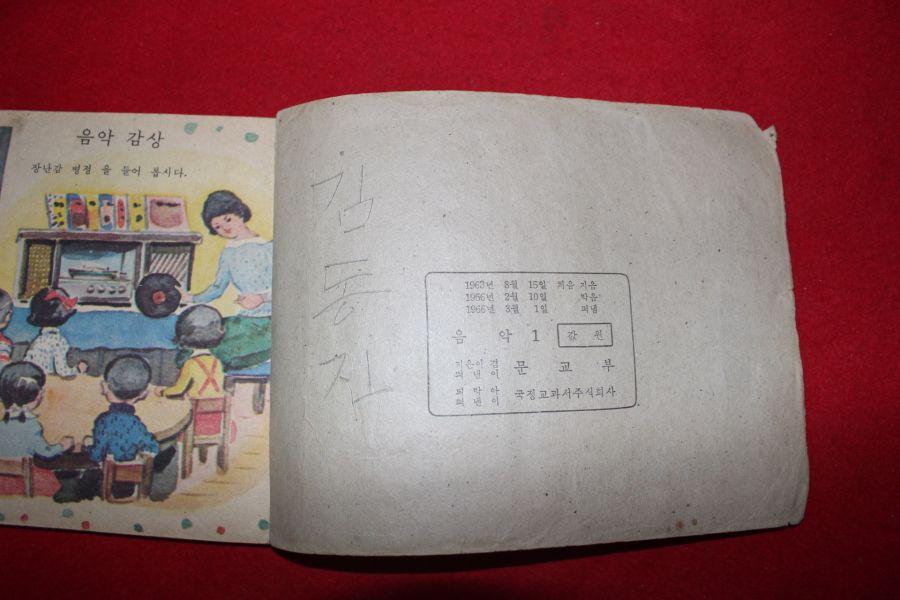 음악 감상
장난감 병정 을 들어 봅시다.
김
동
진
1963년 8월 15일 처음 지음
1966년 2월 10일 박음
1966년 3월 1일 펴냄
음 악 1 값 원
지은이 겸
펴 낸 이
문 교 부
되 박 아
펴 낸 이
국정교과서주식회사